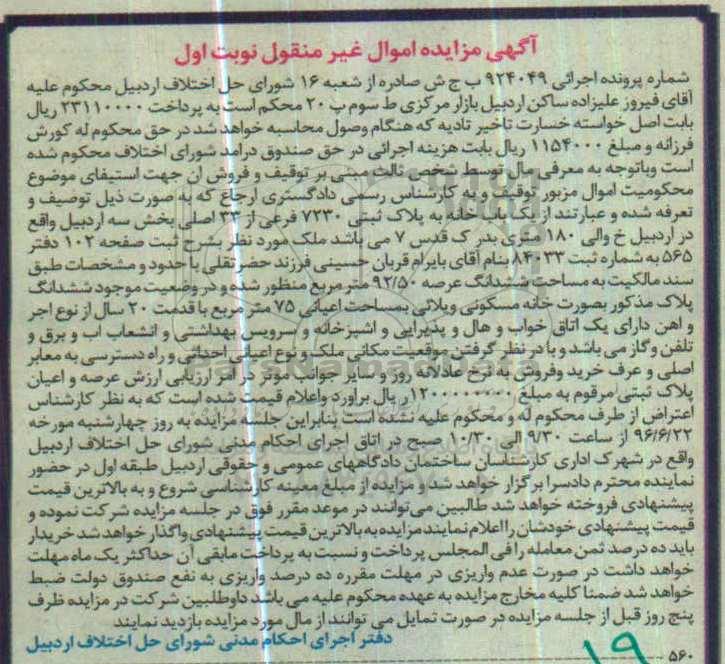 آگهی مزایده اموال غیر منقول نوبت اول
شماره پرونده اجرائی ۹۲۴۰۴۹ ب ج ش صادره از شعبه ۱۶ شورای حل اختلاف اردبیل محکوم علیه
آقای فیروز علیزاده ساکن اردبیل بازار مرکزی ط سوم پ ۲۰ محکم است به پرداخت ۲۳۱۱۰۰۰۰ ریال
بابت اصل خواسته خسارت تاخیر تادیه که هنگام وصول محاسبه خواهد شد در حق محکوم له کورش
فرزانه و مبلغ ۱۱۵۴۰۰۰ ریال بابت هزینه اجرائی در حق صندوق درامد شورای اختلاف محکوم شده
است وباتوجه به معرفی مال توسط شخص ثالث مبنی بر توقیف و فروش ان جهت استیفای موضوع
محکومیت اموال مزبور توقیف و به کارشناس رسمی دادگستری ارجاع که به صورت ذیل توصیف و
تعرفه شده و عبارتند از یک باب خانه به پلاک ثبتی ۷۲۳۰ فرعی از ۳۳ اصلی بخش سه اردبیل واقع
در اردبیل خ والی ۱۸۰ متری بدر ک قدس ۷ می باشد ملک مورد نظر بشرح ثبت صفحه ۱۰۲ دفتر
۵۶۵ به شماره ثبت ۸۴۰۳۳ بنام آقای بایرام قربان حسینی فرزند حضرتقلی با حدود و مشخصات طبق
سند مالکیت به مساحت ششدانگ عرصه ۹۲/۵۰ متر مربع منظور شده و در وضعیت موجود ششدانگ
پلاک مذکور بصورت خانه مسکونی ویلائی بمساحت اعیانی ۷۵ متر مربع با قدمت ۲۰ سال از نوع اجر
و اهن دارای یک اتاق خواب و هال و پذیرایی و اشپزخانه و سرویس بهداشتی و انشعاب اب و برق و
تلفن وگاز می باشد و با در نظر گرفتن موقعیت مکانی ملک و نوع اعیانی احداثی و راه دسترسی به معابر
اصلی و عرف خرید وفروش به نرخ عادلانه روز و سایر جوانب موثر در امر ارزیابی ارزش عرصه و اعیان
پلاک ثبتی مرقوم به مبلغ ۱۲۰۰۰۰۰۰۰۰ ریال براورد واعلام قیمت شده است که به نظر کارشناس
اعتراض از طرف محکوم له و محکوم علیه نشده است بنابراین جلسه مزایده به روز چهارشنبه مورخه
۹۶/۶/۲۲ از ساعت ۹/۳۰ الی ۱۰/۳۰ صبح در اتاق اجرای احکام مدنی شورای حل اختلاف اردبیل
واقع در شهرک اداری کارشناسان ساختمان دادگاههای عمومی و حقوقی اردبیل طبقه اول در حضور
نماینده محترم دادسرا برگزار خواهد شد و مزایده از مبلغ معینه کارشناسی شروع و به بالاترین قیمت
پیشنهادی فروخته خواهد شد طالبین می توانند در موعد مقرر فوق در جلسه مزایده شرکت نموده و
قیمت پیشنهادی خودشان را اعلام نمایند مزایده به بالاترین قیمت پیشنهادی واگذار خواهد شد خریدار
باید ده درصد ثمن معامله را فی المجلس پرداخت و نسبت به پرداخت مابقی آن حداکثر یک ماه مهلت
خواهد داشت در صورت عدم واریزی در مهلت مقرره ده درصد واریزی به نفع صندوق دولت ضبط
خواهد شد ضمنا کلیه مخارج مزایده به عهده محکوم علیه می باشد داوطلبین شرکت در مزایده ظرف
پنج روز قبل از جلسه مزایده در صورت تمایل می توانند از مال مورد مزایده بازدید نمایند
دفتر اجرای احکام مدنی شورای حل اختلاف اردبیل
۵۶۰
۱۹